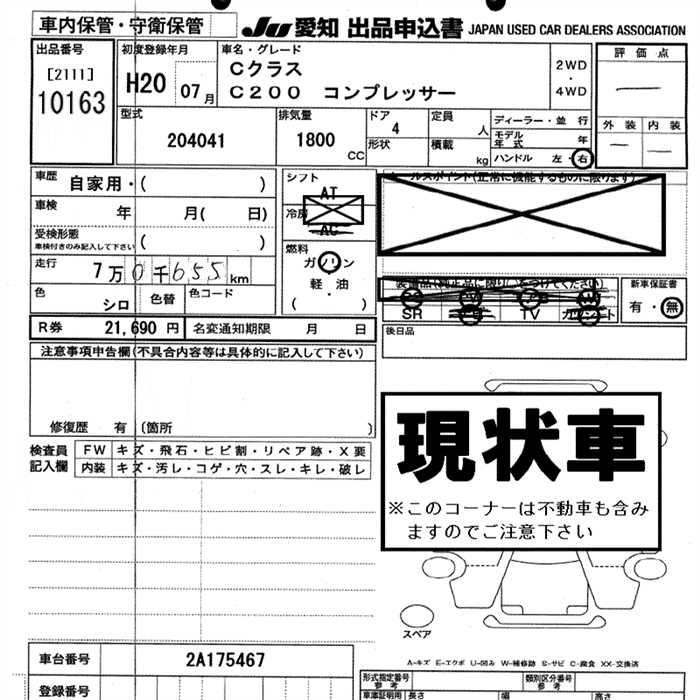 車内保管・守衛保管 JU 愛知 出品申込書 JAPAN USED CAR DEALERS ASSOCIATION
出品番号 [2111] 10163
初度登録年月 H20 07月
車名・グレード
Cクラス
C200 コンプレッサー
2WD・4WD
評価点
外装 内装
型式 204041
排気量 1800 CC
ドア 4
形状
定員 人
積載 kg
ディーラー・並行
モデル年式 年
ハンドル 左・右
車歴 自家用・( )
車検 年 月( 日)
受検形態
車検付きのみ記入して下さい ( )
走行 7万0千655km
色 シロ 色替 色コード
シフト AT
冷房 AC
燃料
ガソリン
軽・油
( )
セールスポイント(正常に機能するものに限ります)
装備品(純正品に限り○をつけてください)
SR TV
新車保証書
有・無
後日品
R券 21,690円 名変通知期限 月 日
注意事項申告欄(不具合内容等は具体的に記入して下さい)
修復歴 有 (箇所 )
検査員記入欄
FW キズ・飛石・ヒビ割・リペア跡・X要
内装 キズ・汚レ・コゲ・穴・スレ・キレ・破レ
現状車
※このコーナーは不動車も含み
ますのでご注意下さい
スペア
A-キズ E-エクボ U-凹み W-補修跡 S-サビ C-腐食 XX-交換済
車台番号 2A175467
登録番号
形式指定番号
参考
類別区分番号
参考
車庫証明用 長さ 幅 高さ